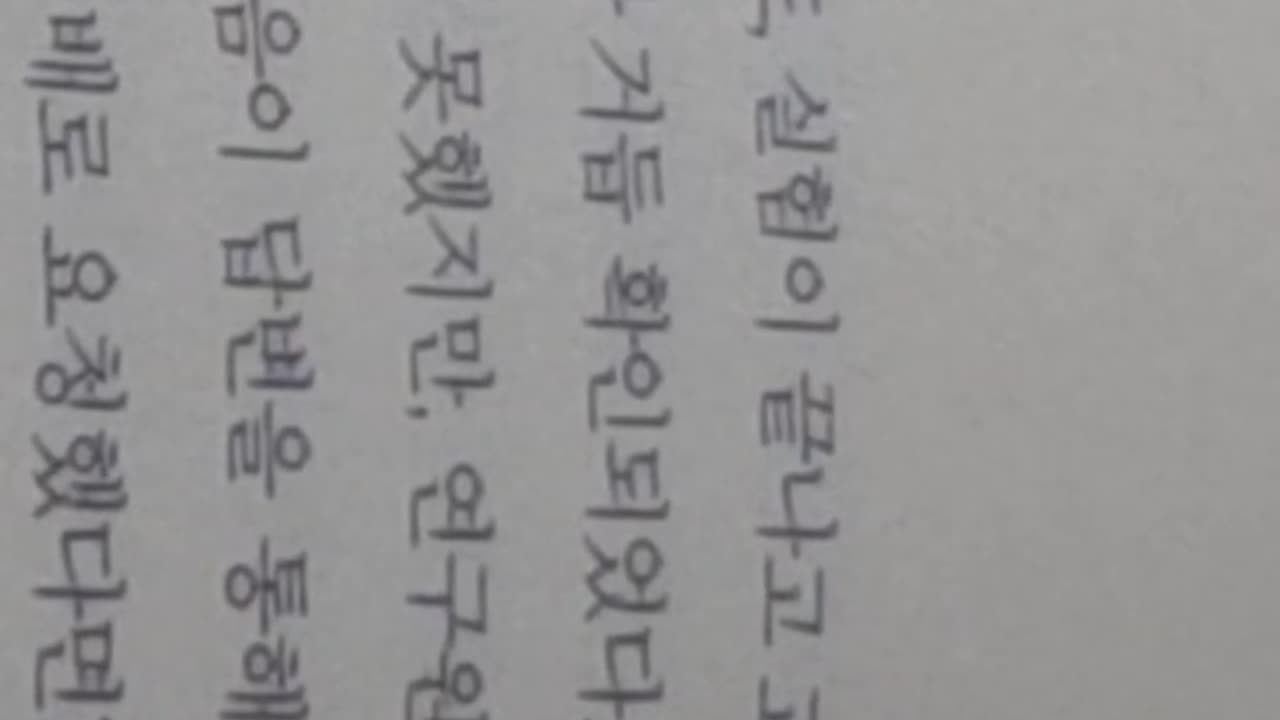 실험이 끝나고
거듭 확인되었다
못했지만, 연구원
음이 답변을 통해
요청했다면